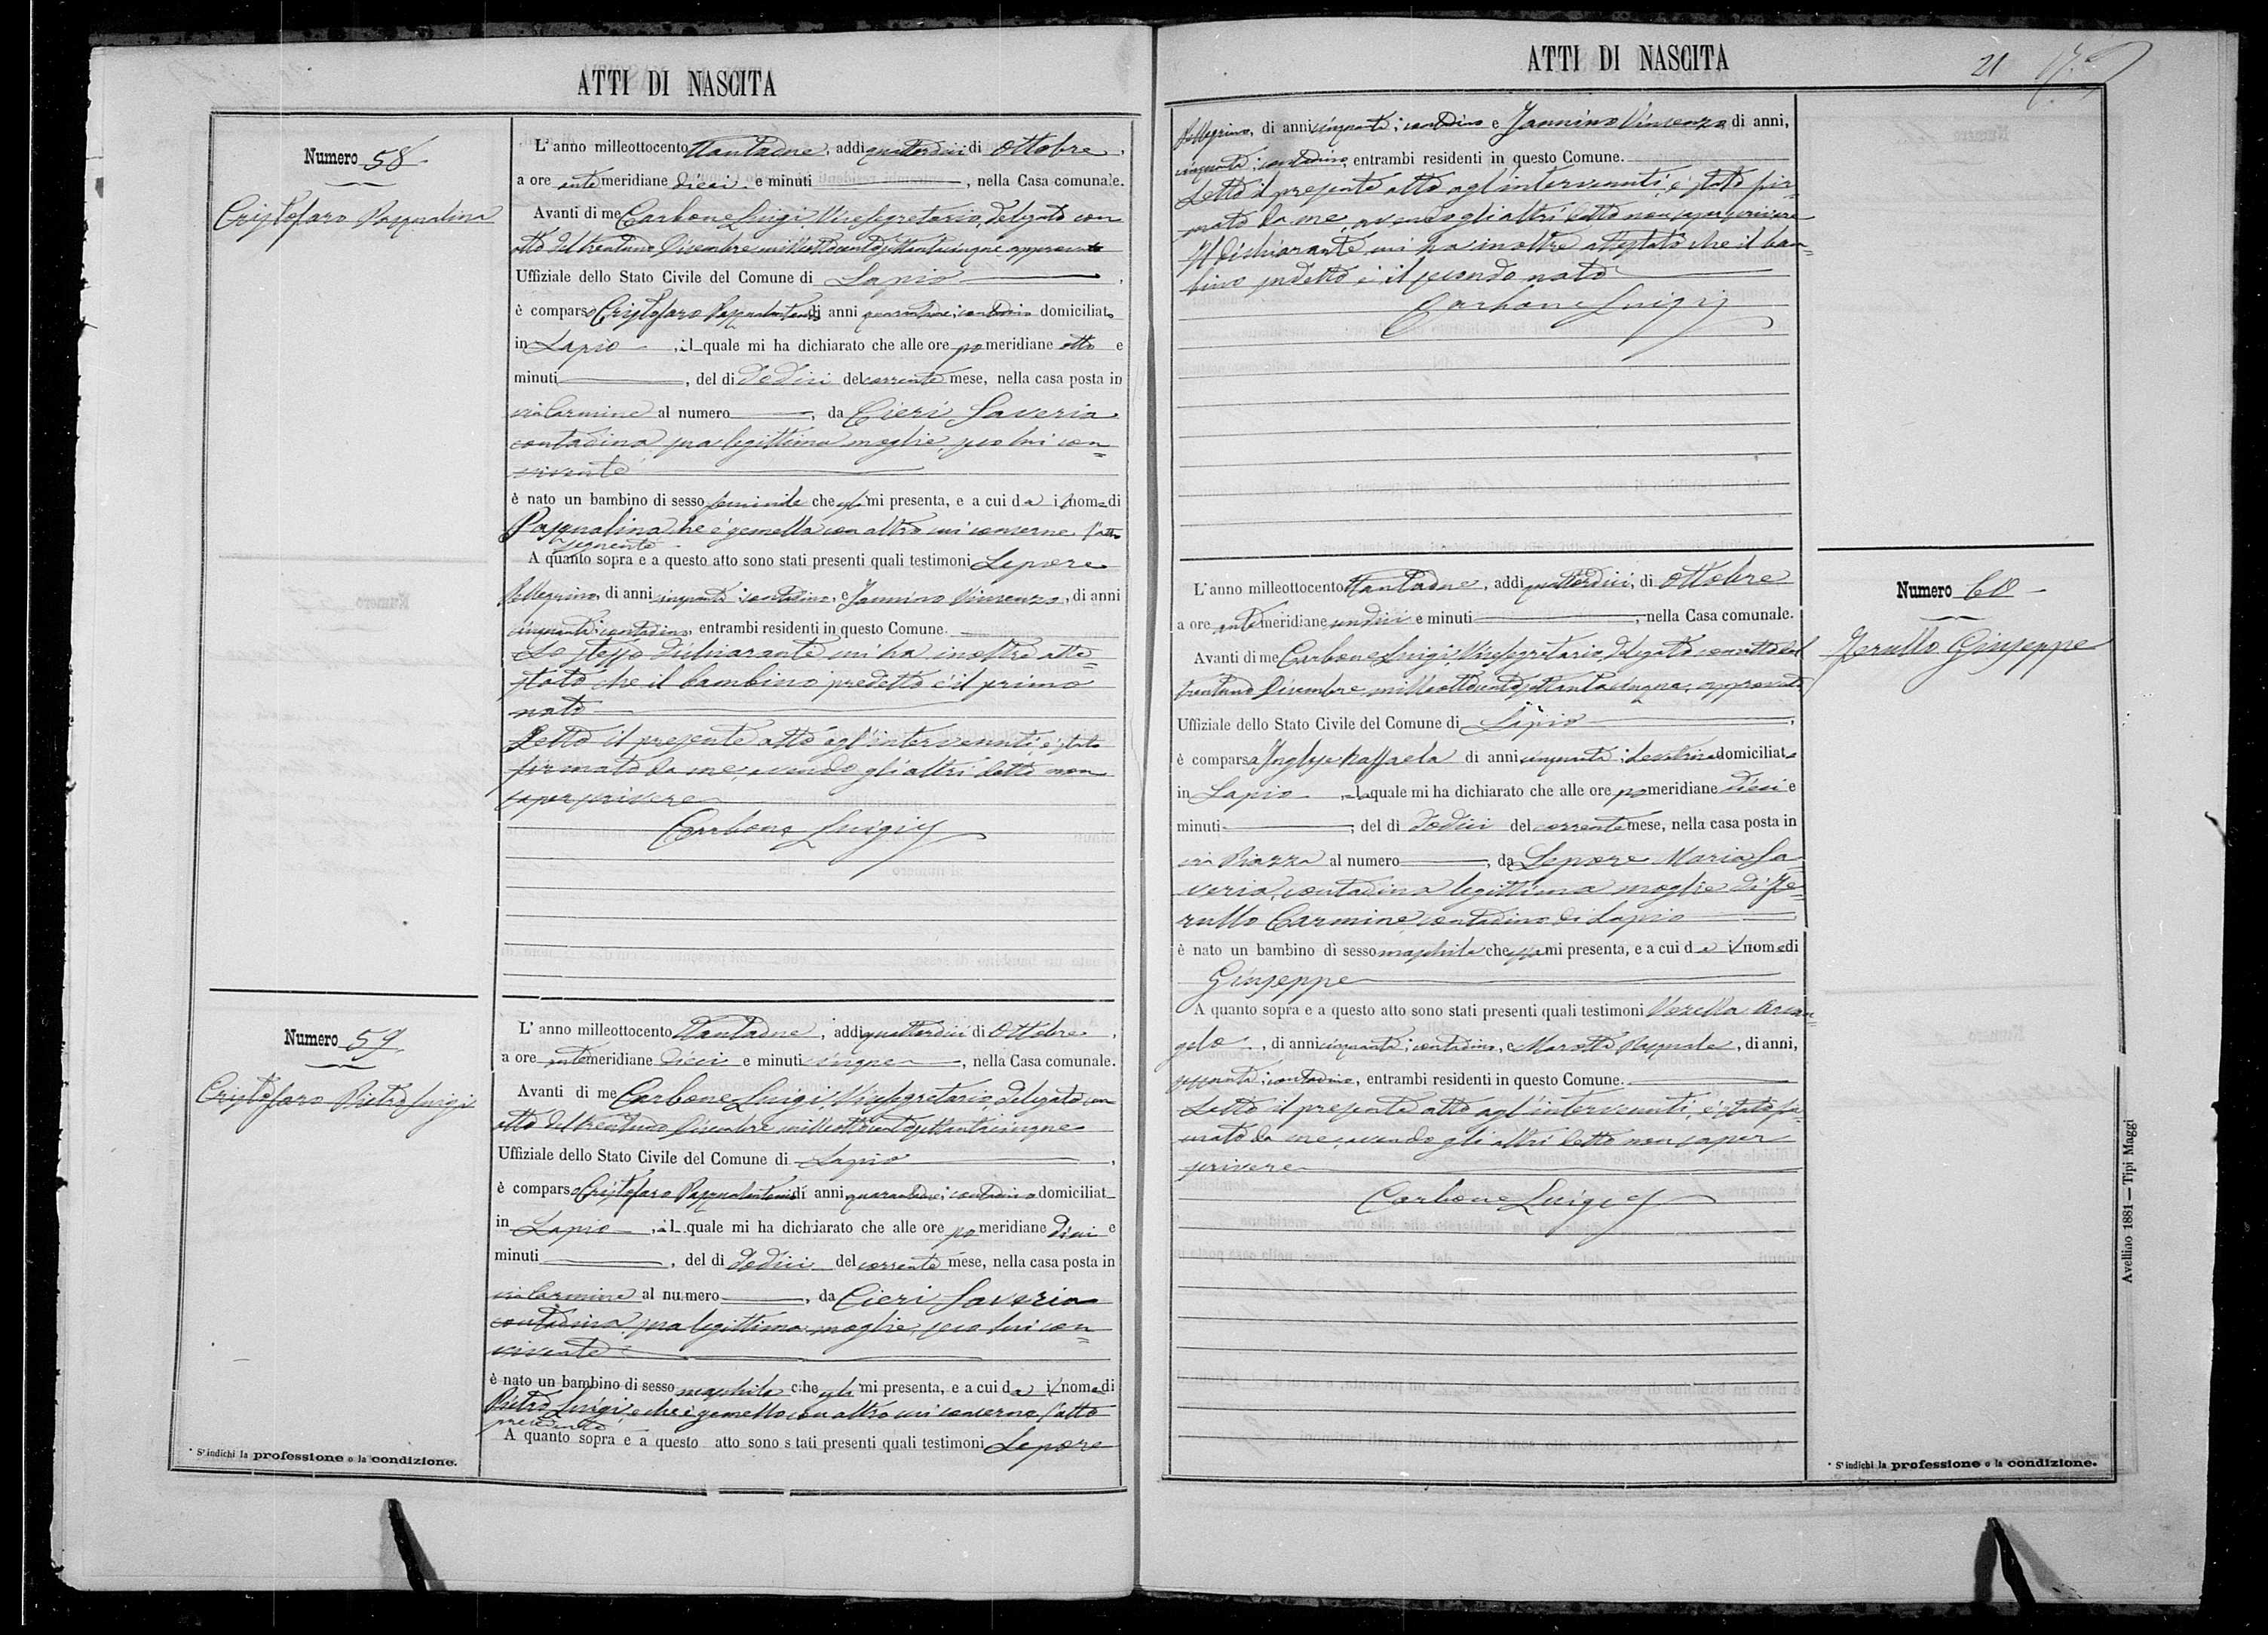 ATTI DI NASCITA
Numero 58
Cristofaro Pasqualina
L'anno milleottocento ttantadue, addì quattordici di Ottobre,
a ore antemeridiane dieci e minuti, nella Casa comunale.
Avanti di me Carbone Luigi, Vicesegretario, delegato con
atto del trentuno Dicembre milleottocentosettantacinque approvato
Uffiziale dello Stato Civile del Comune di Lapio,
è comparso Cristofaro di anni quarantadue; contadino domiciliato
in Lapio, il quale mi ha dichiarato che alle ore pomeridiane otto e
minuti, del dì dodici del corrente mese, nella casa posta in
via Carmine al numero, da Cieri Saveria
contadina sua legittima moglie, seco lui con=
vivente
è nato un bambino di sesso feminile che egli mi presenta, e a cui da il nome di
Pasqualina che è gemella con altro cui concerne l'atto
seguente
A quanto sopra e a questo atto sono stati presenti quali testimoni Lepore
Pellegrino, di anni cinquanta; contadino, e Jannino Vincenzo, di anni
cinquanta; contadino, entrambi residenti in questo Comune.
Lo stesso dichiarante mi ha inoltre atte=
stato che il bambino predetto è il primo
nato
Letto il presente atto agl'intervenuti, è stato
firmato da me, avendo gli altri detto non
saper scrivere
Carbone Luigi
Numero 59
Cristofaro Pietro Luigi
L'anno milleottocento ttantadue, addì quattordici di Ottobre,
a ore antemeridiane dieci e minuti cinque, nella Casa comunale.
Avanti di me Carbone Luigi, Vicesegretario, delegato con
atto del trentuno Dicembre milleottocentosettantacinque
Uffiziale dello Stato Civile del Comune di Lapio,
è comparso Cristofaro di anni quarantadue; contadino domiciliat
in Lapio, il quale mi ha dichiarato che alle ore pomeridiane dieci e
minuti, del dì dodici del corrente mese, nella casa posta in
via Carmine al numero, da Cieri Saveria
contadina sua legittima moglie, seco lui con=
vivente
è nato un bambino di sesso maschile che egli mi presenta, e a cui da il nome di
Pietro Luigi, che è gemello con altro cui concerne l'atto
precedente
A quanto sopra e a questo atto sono stati presenti quali testimoni Lepore
* S'indichi la professione o la condizione.
ATTI DI NASCITA
21
Pellegrino, di anni cinquanta; contadino e Jannino Vincenzo, di anni,
cinquanta; contadino, entrambi residenti in questo Comune.
Letto il presente atto agl'intervenuti, è stato fir=
mato da me, avendo gli altri detto non saper scrivere
Il dichiarante mi ha inoltre attestato che il bam=
bino sudetto è il secondo nato
Carbone Luigi
Numero 60
Jerullo Giuseppe
L'anno milleottocento ttantadue, addì quattordici, di Ottobre
a ore antemeridiane undici e minuti, nella Casa comunale.
Avanti di me Carbone Luigi, Vicesegretario, delegato con atto del
trentuno Dicembre milleottocentosettantacinque, approvato
Uffiziale dello Stato Civile del Comune di Lapio,
è comparsa Inglese Raffaela di anni cinquanta; Levatrice domiciliata
in Lapio, la quale mi ha dichiarato che alle ore pomeridiane dieci e
minuti, del dì dodici del corrente mese, nella casa posta in
via Piazza al numero, da Lepore Maria Sa=
veria, contadina legittima moglie di Je=
rullo Carmine, contadino di Lapio
è nato un bambino di sesso maschile che essa mi presenta, e a cui da il nome di
Giuseppe
A quanto sopra e a questo atto sono stati presenti quali testimoni
gelo, di anni cinquanta; contadino, e Marotta Pasquale, di anni,
sessanta; contadino, entrambi residenti in questo Comune.
Letto il presente atto agl'intervenuti, è stato fir=
mato da me, avendo gli altri detto non saper
scrivere
Carbone Luigi
* S'indichi la professione o la condizione.
Avellino 1881 — Tipi Maggi